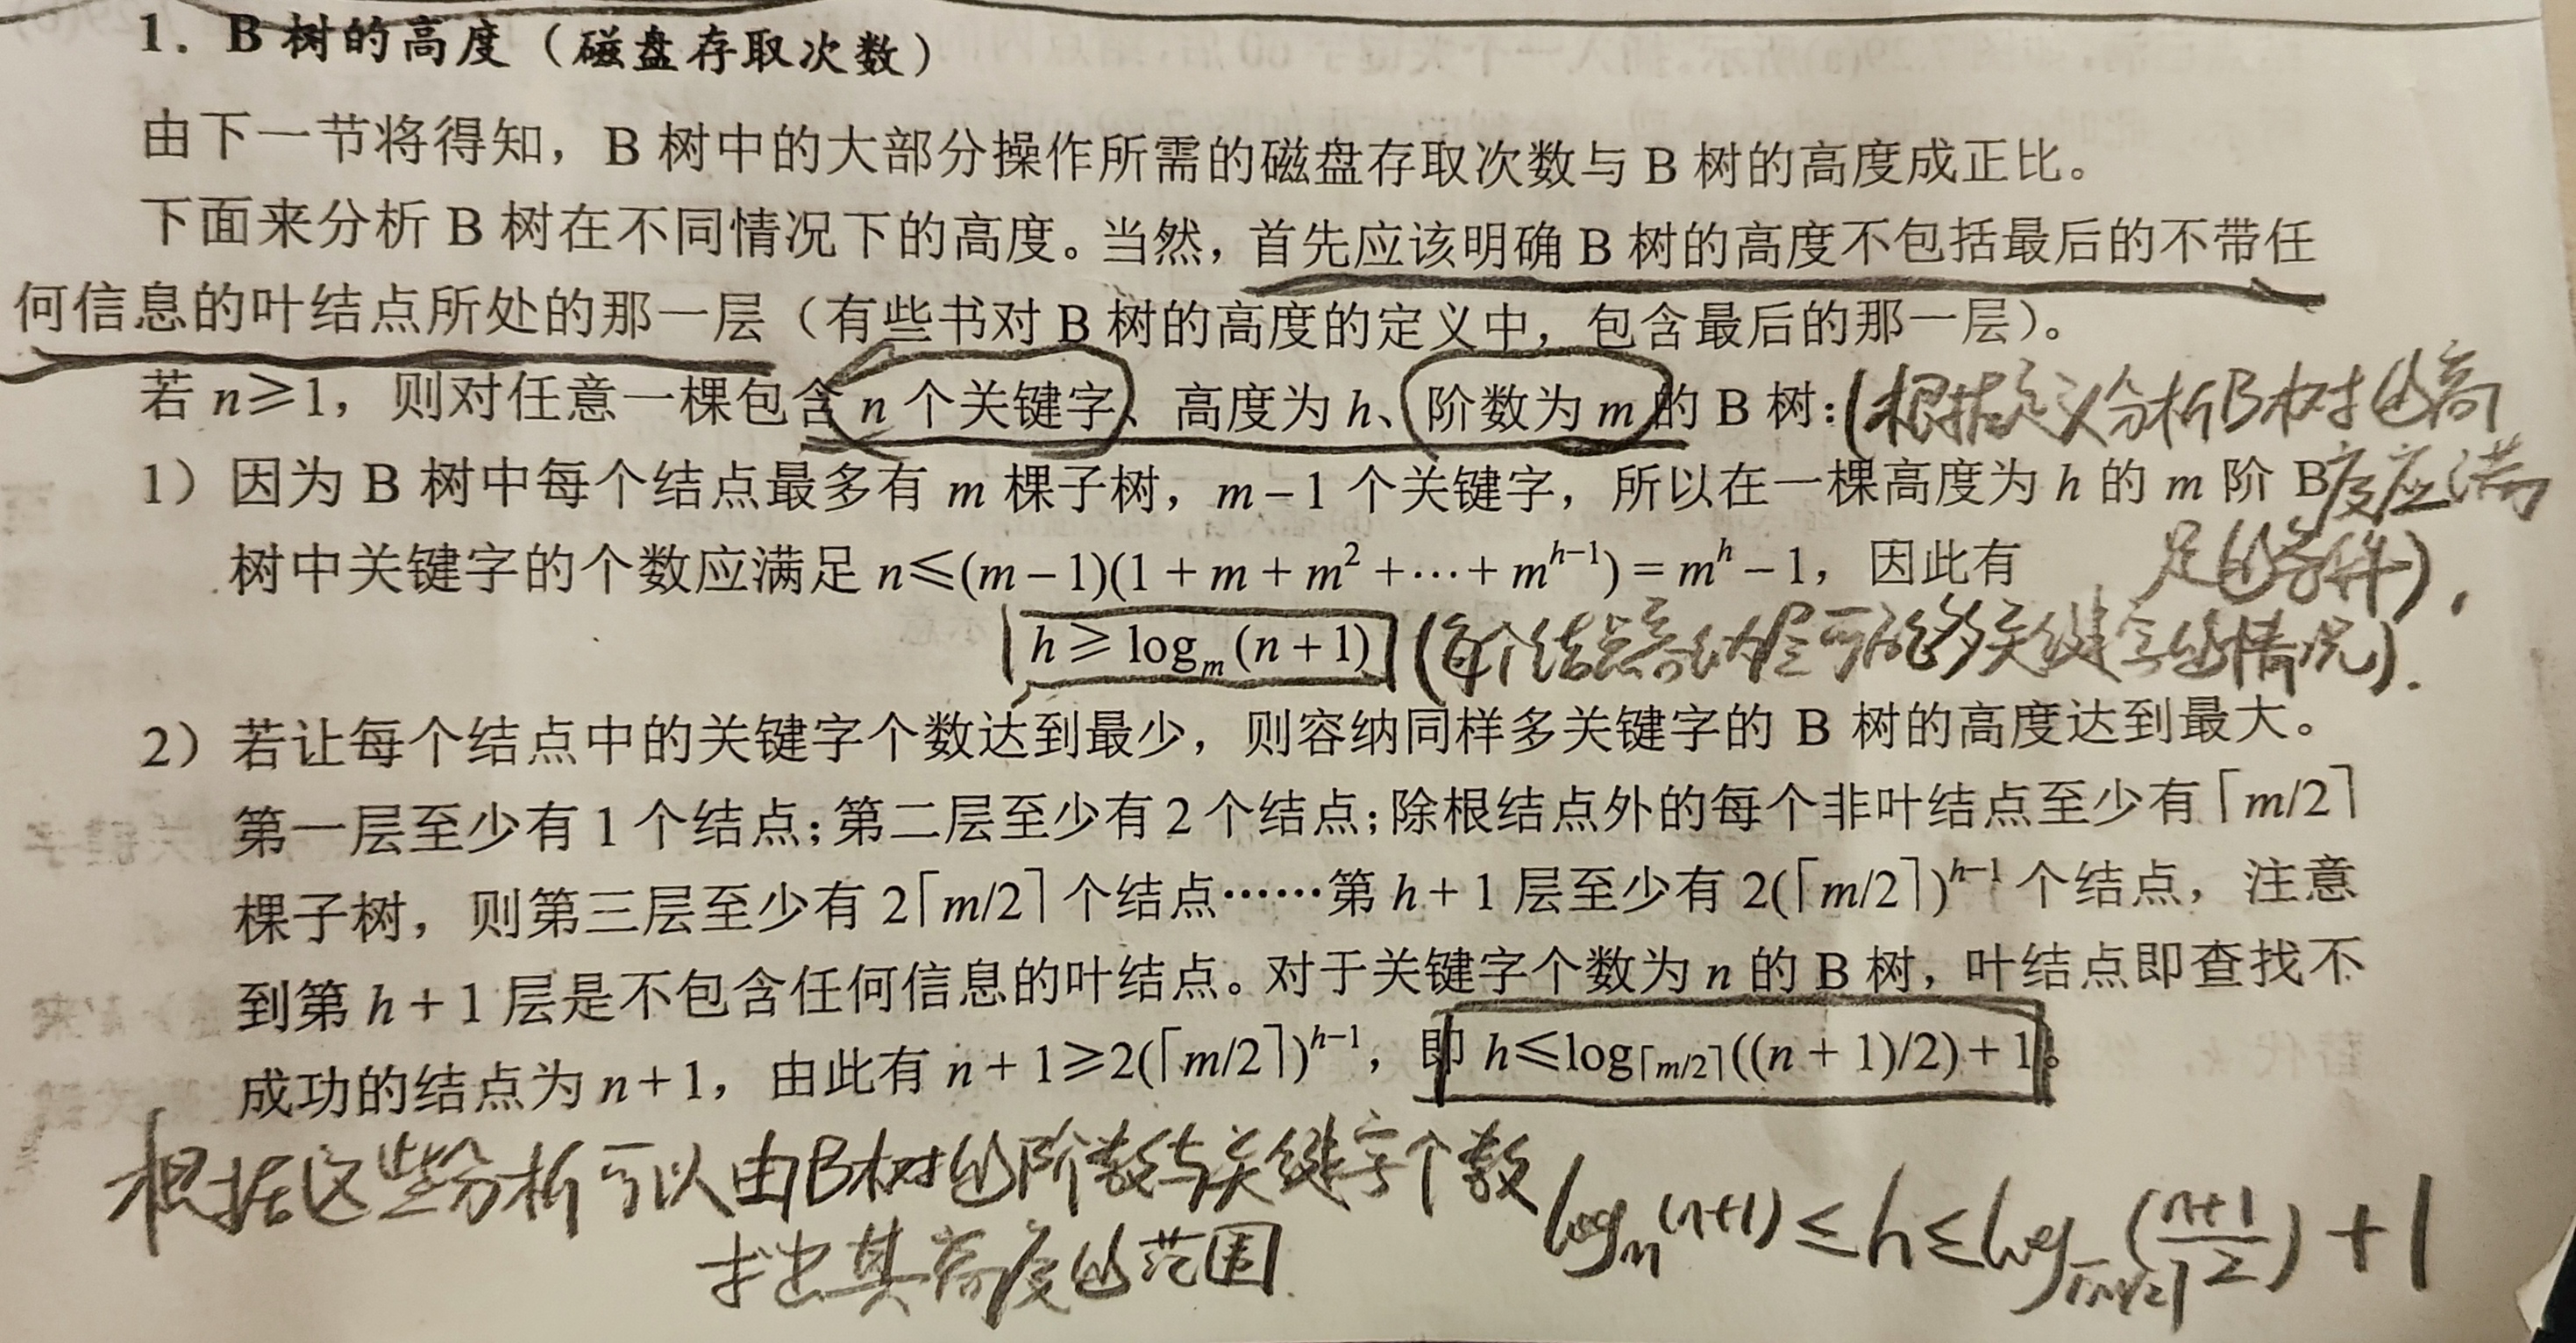 1. B 树的高度（磁盘存取次数）
由下一节将得知，B 树中的大部分操作所需的磁盘存取次数与 B 树的高度成正比。
下面来分析 B 树在不同情况下的高度。当然，首先应该明确 B 树的高度不包括最后的不带任
何信息的叶结点所处的那一层（有些书对 B 树的高度的定义中，包含最后的那一层）。
若 n≥1，则对任意一棵包含 n 个关键字、高度为 h、阶数为 m 的 B 树：(根据定义分析B树的高
1）因为 B 树中每个结点最多有 m 棵子树，m−1 个关键字，所以在一棵高度为 h 的 m 阶 B 度应满
树中关键字的个数应满足 n≤(m−1)(1+m+m²+⋯+mʰ⁻¹)=mʰ−1，因此有 足的条件),
h≥logₘ(n+1) (每个结点容纳尽可能多关键字的情况).
2）若让每个结点中的关键字个数达到最少，则容纳同样多关键字的 B 树的高度达到最大。
第一层至少有 1 个结点；第二层至少有 2 个结点；除根结点外的每个非叶结点至少有⌈m/2⌉
棵子树，则第三层至少有 2⌈m/2⌉个结点……第 h+1 层至少有 2(⌈m/2⌉)ʰ⁻¹ 个结点，注意
到第 h+1 层是不包含任何信息的叶结点。对于关键字个数为 n 的 B 树，叶结点即查找不
成功的结点为 n+1，由此有 n+1≥2(⌈m/2⌉)ʰ⁻¹，即 h≤log⌈m/2⌉((n+1)/2)+1。
根据这些分析可以由B树的阶数与关键字个数
求出其高度的范围. logₘ(n+1)≤h≤log⌈m/2⌉(n+1/2)+1